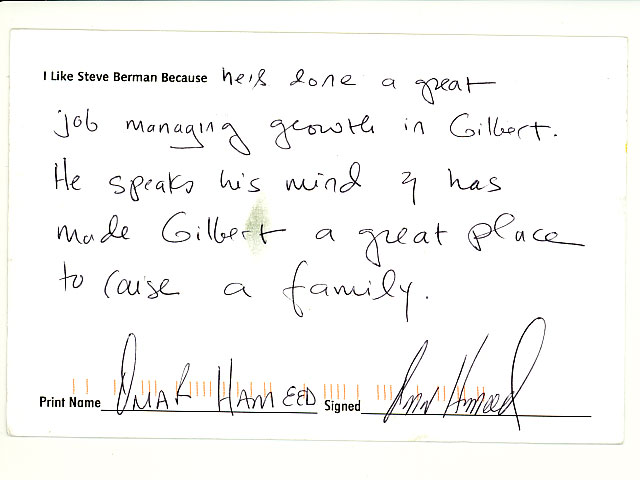 I Like Steve Berman Because he's done a great
job managing growth in Gilbert.
He speaks his mind & has
made Gilbert a great place
to raise a family.
Print Name OMAR HAMEED Signed Omar Hameed